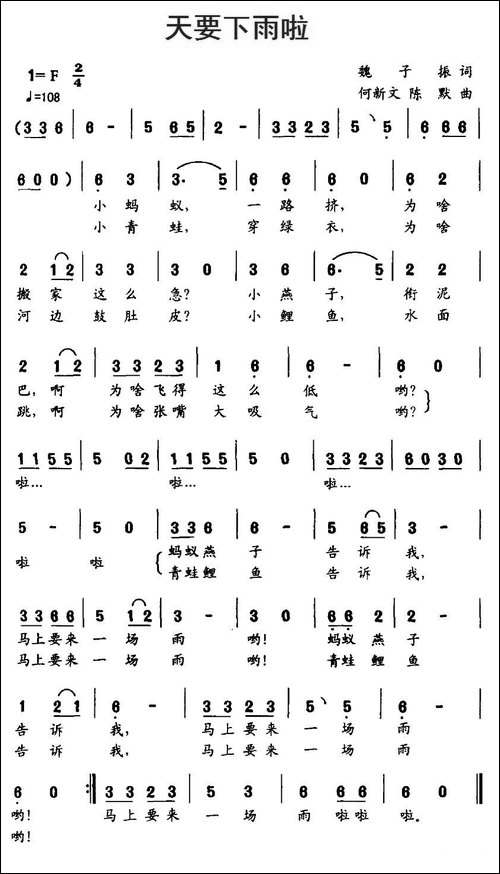 天要下雨啦
1=F 2/4
♩=108
魏子振词
何新文 陈默曲
(3 3 6 | 6 - | 5 6 5 | 2 - | 3 3 2 3 | 5 5 | 6 6 6 |
6 0 0) | 6 3 | 3· 5 | 6 6 | 6 0 | 6 2 |
小蚂蚁, 一路挤, 为啥
小青蛙, 穿绿衣, 为啥
2 1 2 | 3 3 | 3 0 | 3 6 | 6· 5 | 5 2 |
搬家这么急? 小燕子, 衔泥
河边鼓肚皮? 小鲤鱼, 水面
2 1 2 | 3 3 2 3 | 1 6 | 6 - | 6 0 |
巴,啊 为啥飞得这么低 哟?
跳,啊 为啥张嘴大吸气 哟?
1 1 5 5 | 5 0 2 | 1 1 5 5 | 5 0 | 3 3 2 3 | 6 0 3 0 |
啦… 啦… 啦…
5 - | 5 0 | 3 3 6 | 6 - | 5 6 5 | 3 - |
啦 啦 蚂蚁燕子 告诉我,
青蛙鲤鱼 告诉我,
3 3 6 6 | 5 1 2 | 3 - | 3 0 | 6 6 2 | 2 - |
马上要来一场雨 哟! 蚂蚁燕子
马上要来一场雨 哟! 青蛙鲤鱼
1 2 1 | 6 - | 3 3 2 3 | 5 5 | 6 - |
告诉我, 马上要来一场雨
告诉我, 马上要来一场雨
6 0 :| 3 3 2 3 | 5 3 | 6 6 6 | 6 0 ‖
哟! 马上要来一场雨啦啦啦。
哟!